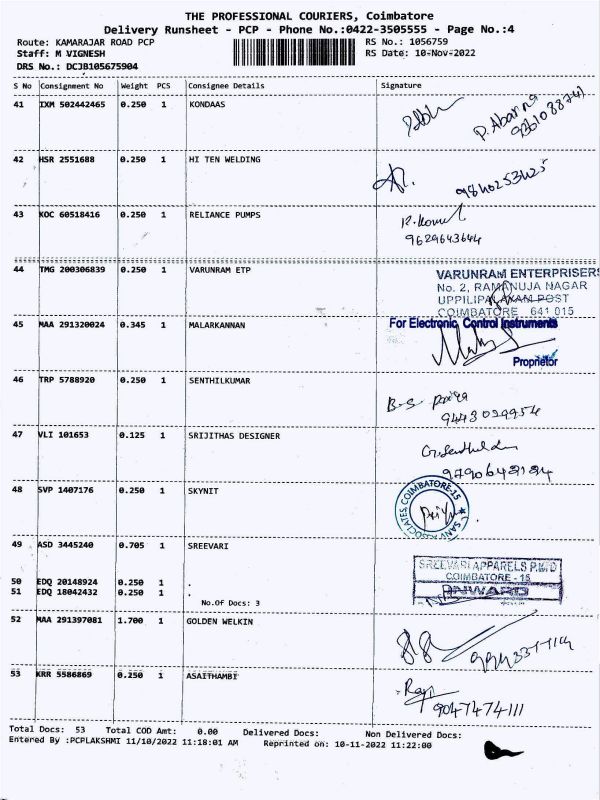 THE PROFESSIONAL COURIERS, Coimbatore
Delivery Runsheet - PCP - Phone No.:0422-3505555 - Page No.:4
Route: KAMARAJAR ROAD PCP RS No.: 1056759
Staff: M VIGNESH RS Date: 10-Nov-2022
DRS No.: DCJB105675904
S No Consignment No Weight PCS Consignee Details Signature
41 IXM 502442465 0.250 1 KONDAAS
P. Abarna
9361088741
42 HSR 2551688 0.250 1 HI TEN WELDING
9840253425
43 KOC 60518416 0.250 1 RELIANCE PUMPS
9629643644
44 TMG 200306839 0.250 1 VARUNRAM ETP
VARUNRAM ENTERPRISERS
No. 2, RAMANUJA NAGAR
UPPILIPALAYAM POST
COIMBATORE 641 015
45 MAA 291320024 0.345 1 MALARKANNAN
For Electronic Control Instruments
Proprietor
46 TRP 5788920 0.250 1 SENTHILKUMAR
B-S Priya
9443029954
47 VLI 101653 0.125 1 SRIJITHAS DESIGNER
48 SVP 1407176 0.250 1 SKYNIT
COIMBATORE-15
Priya
49 ASD 3445240 0.705 1 SREEVARI
SREEVARI APPARELS P.LTD
COIMBATORE - 15
INWARD
50 EDQ 20148924 0.250 1 .
51 EDQ 18042432 0.250 1 .
No.Of Docs: 3
52 MAA 291397081 1.700 1 GOLDEN WELKIN
53 KRR 5586869 0.250 1 ASAITHAMBI
Raja
9047474111
Total Docs: 53 Total COD Amt: 0.00 Delivered Docs: Non Delivered Docs:
Entered By :PCPLAKSHMI 11/10/2022 11:18:01 AM Reprinted on: 10-11-2022 11:22:00